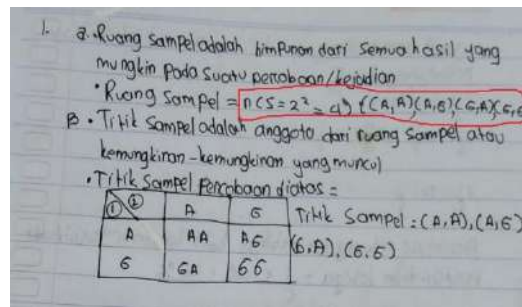 1. a. Ruang sampel adalah himpunan dari semua hasil yang
mungkin pada suatu percobaan/kejadian
• Ruang Sampel = n(S = 2² = 4) {(A,A)(A,G)(G,A)(G,G
B. Titik Sampel adalah anggota dari ruang sampel atau
kemungkinan-kemungkinan yang muncul
• Titik Sampel Percobaan diatas =
① ② A G Titik Sampel : (A,A),(A,G)
A AA AG (G,A),(G,G)
G GA GG